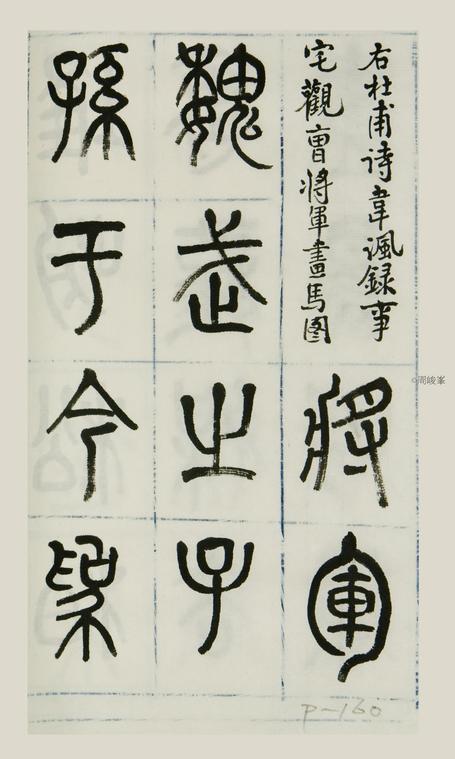 右杜甫诗韋諷録事
宅觀曹將軍畫馬图
將軍
魏武之子
孫于今爲
p-160
©周峻峯